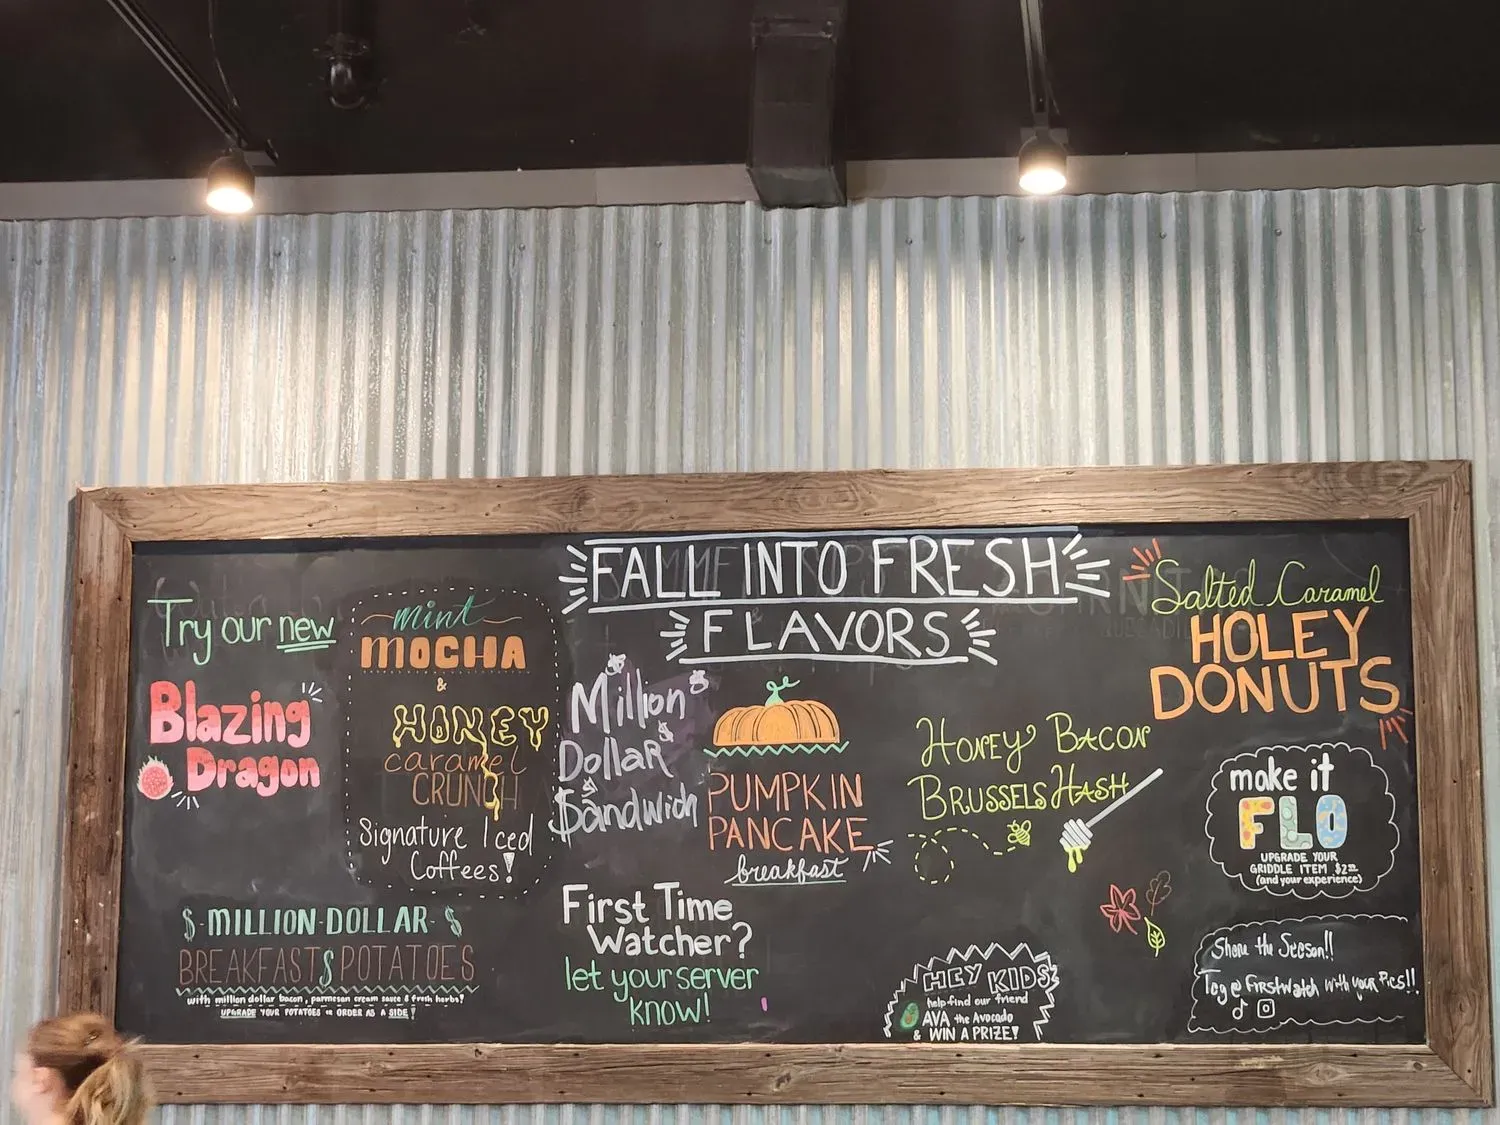 FALL INTO FRESH
FLAVORS
Try our new
Blazing
Dragon
mint
MOCHA
&
HONEY
caramel
CRUNCH
Signature Iced
Coffees!
$-MILLION-DOLLAR-$
BREAKFAST$POTATOES
with million dollar bacon, parmesan cream sauce & fresh herbs!
UPGRADE YOUR POTATOES or ORDER AS A SIDE!
Million
Dollar
$andwich
PUMPKIN
PANCAKE
breakfast
First Time
Watcher?
let your server
know!
Honey Bacon
Brussels Hash
HEY KIDS
help find our friend
AVA the Avocado
& WIN A PRIZE!
Salted Caramel
HOLEY
DONUTS
make it
FLO
UPGRADE YOUR
GRIDDLE ITEM $2.00
(and your experience)
Share the Season!!
Tag @ Firstwatch with your Pics!!